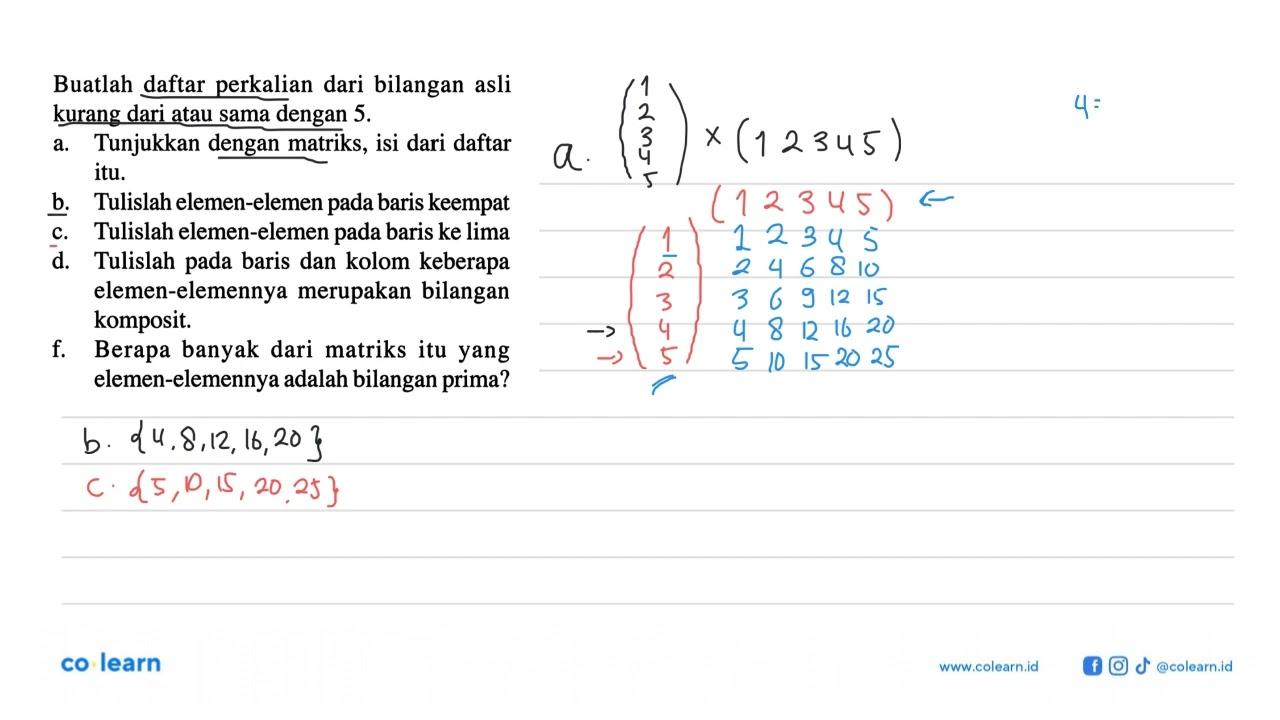 Buatlah daftar perkalian dari bilangan asli
kurang dari atau sama dengan 5.
a. Tunjukkan dengan matriks, isi dari daftar
itu.
b. Tulislah elemen-elemen pada baris keempat
c. Tulislah elemen-elemen pada baris ke lima
d. Tulislah pada baris dan kolom keberapa
elemen-elemennya merupakan bilangan
komposit.
f. Berapa banyak dari matriks itu yang
elemen-elemennya adalah bilangan prima?
a. (1
2
3
4
5) × (1 2 3 4 5)
4=
(1 2 3 4 5) ←
(1 1 2 3 4 5
2 2 4 6 8 10
3 3 6 9 12 15
→ 4 4 8 12 16 20
→ 5) 5 10 15 20 25
b. {4, 8, 12, 16, 20}
c. {5, 10, 15, 20, 25}
co·learn
www.colearn.id
@colearn.id